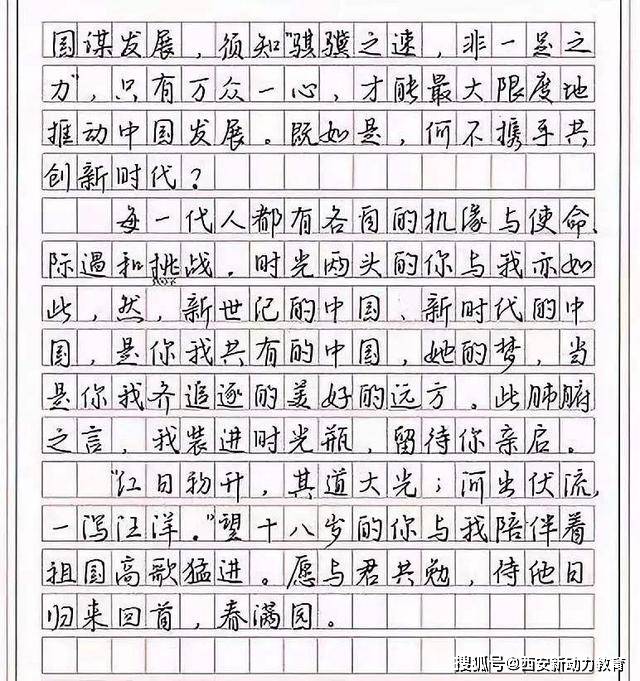 国谋发展，须知“骐骥之速，非一足之
力”，只有万众一心，才能最大限度地
推动中国发展。既如是，何不携手共
创新时代？
每一代人都有各自的机缘与使命、
际遇和挑战．时光两头的你与我亦如
此，然，新世纪的中国、新时代的中
国，是你我共有的中国，她的梦，当
是你我齐追逐的美好的远方。此肺腑
之言，我装进时光瓶，留待你亲启。
“红日初升，其道大光；河出伏流，
一泻汪洋．”望十八岁的你与我陪伴着
祖国高歌猛进。愿与君共勉，待他日
归来回首，春满园。
搜狐号@西安新动力教育